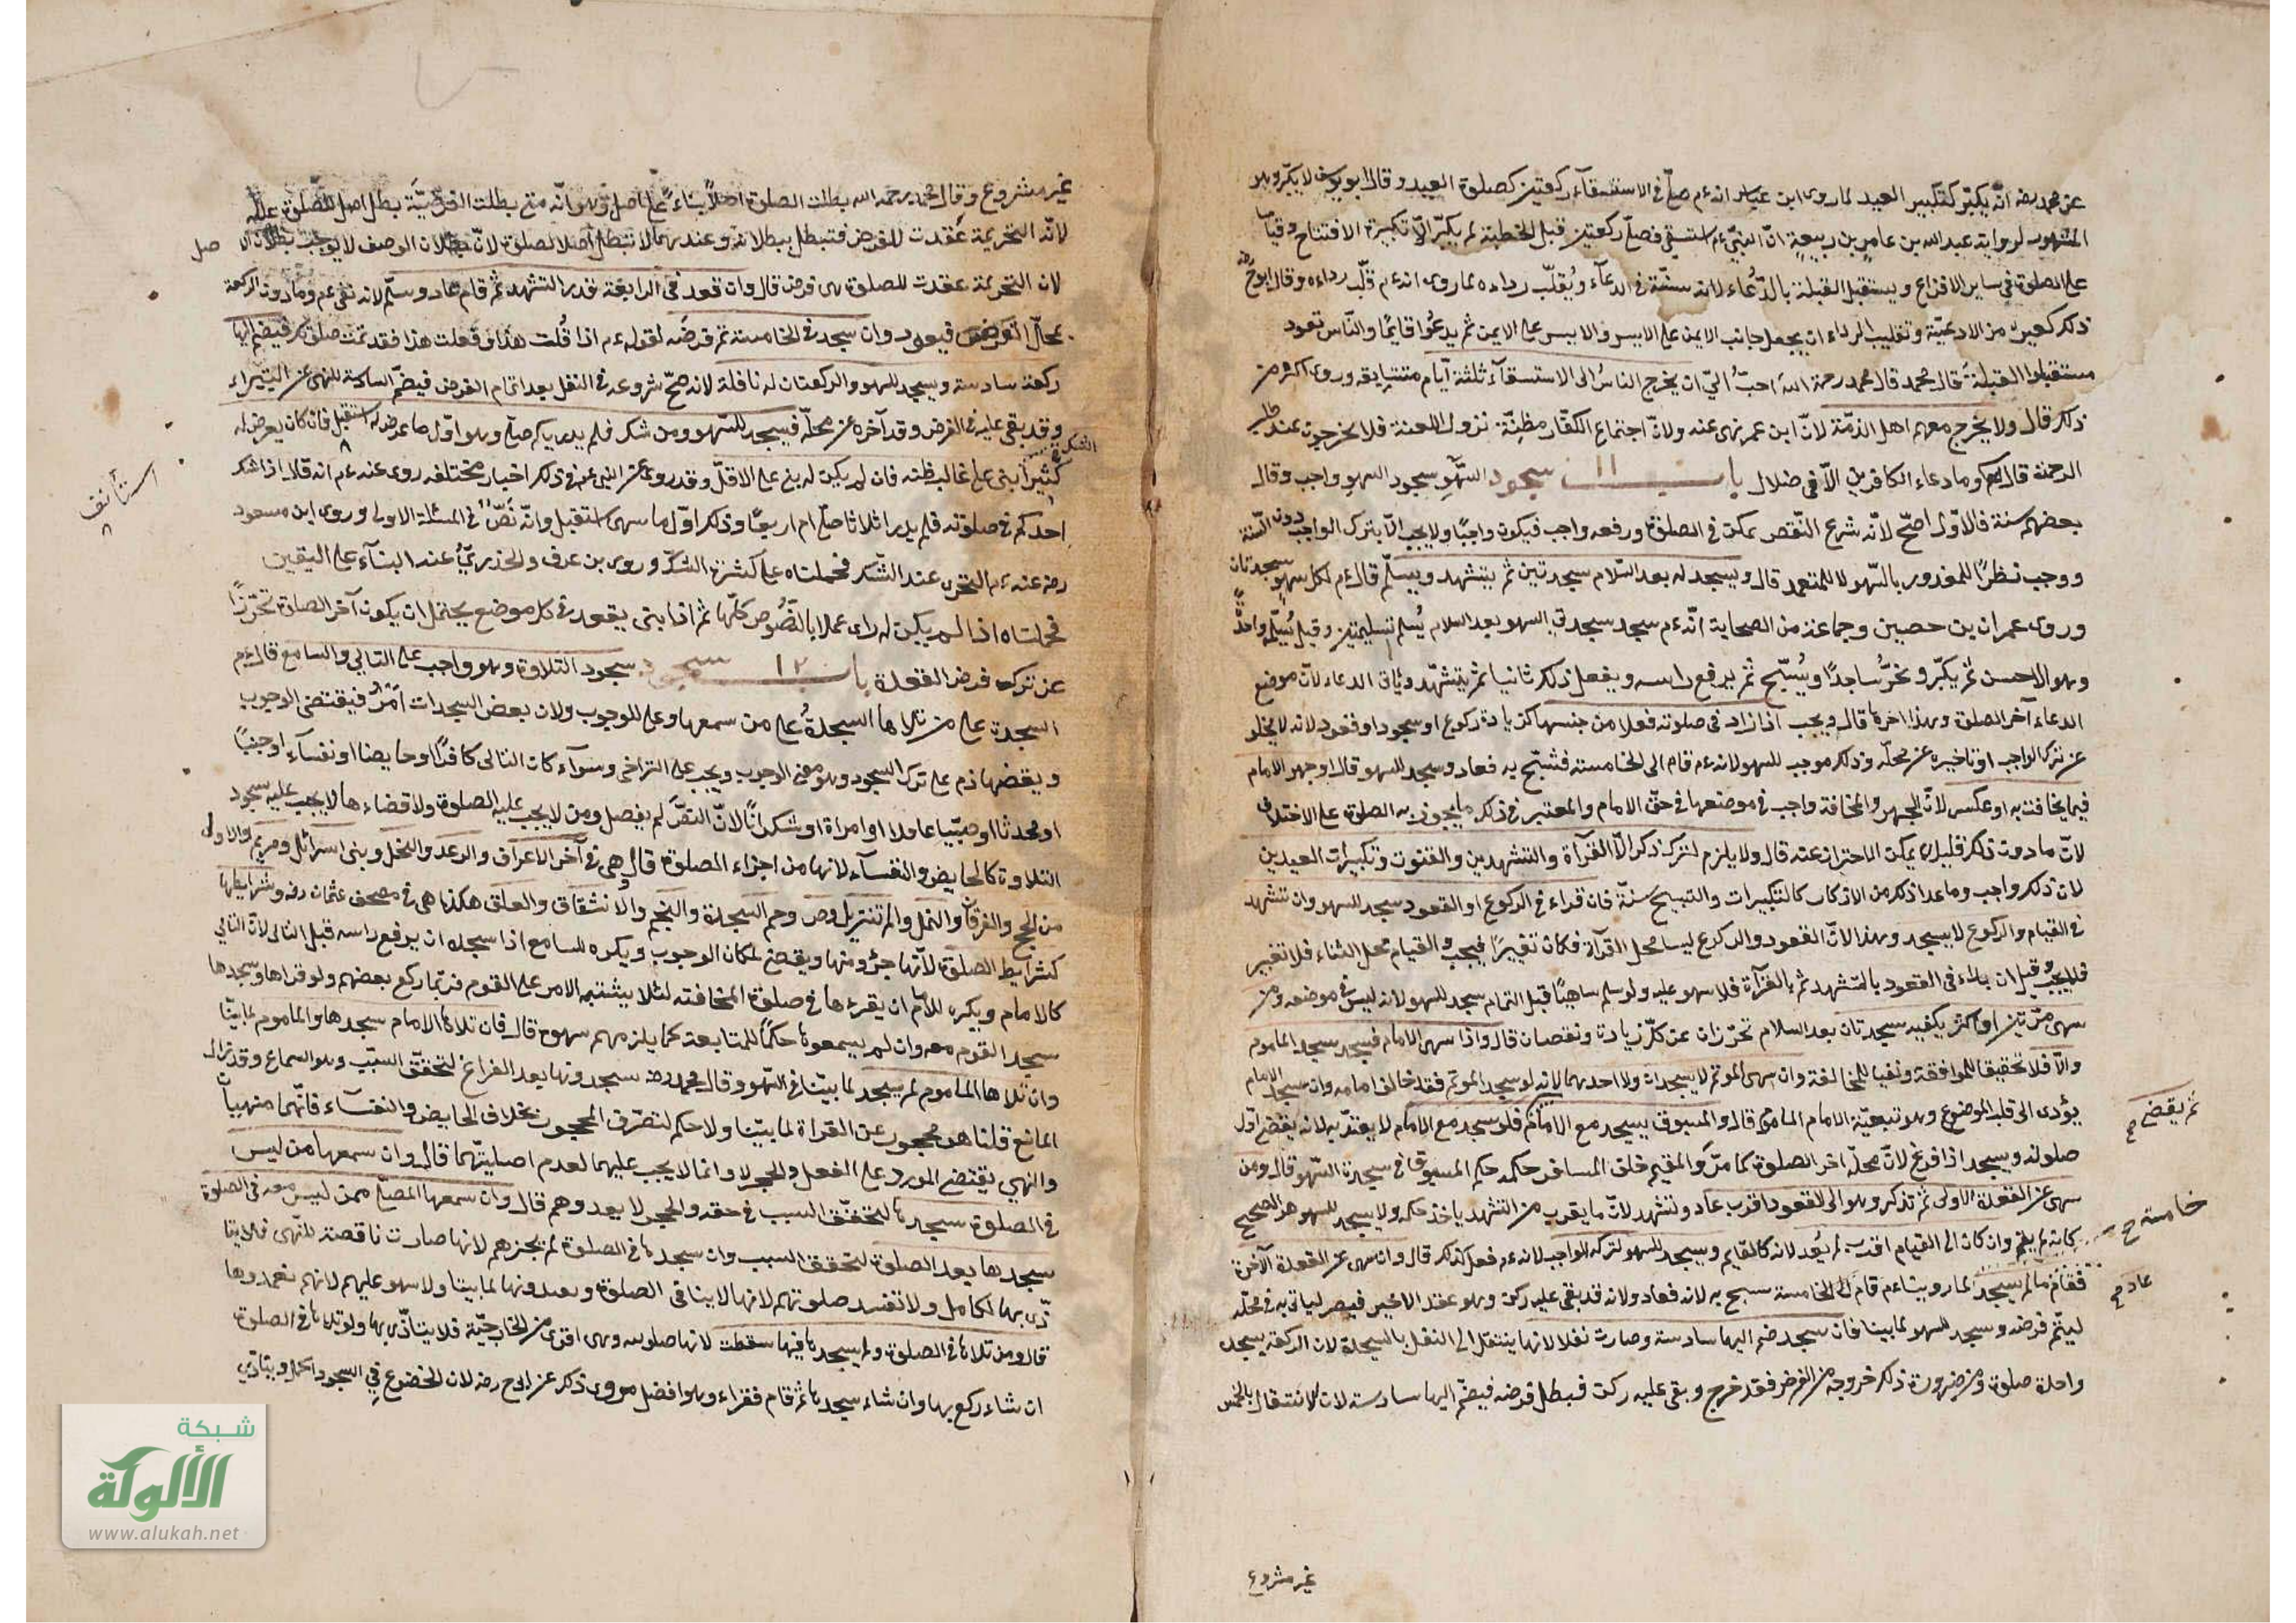 عن محمد رضه انّه يكبّر كتكبير العيد لما روى ابن عباس انه ءم صلّى في الاستسقاء ركعتين كصلوة العيد وقال ابو يوسف لا يكبّر وهو
المشهور لرواية عبد الله بن عامر بن ربيعة انّ النبيّ ءم استسقى فصلّى ركعتين قبل الخطبة لم يكبّر الّا تكبيرة الافتتاح وقياسا
على الصلوة في ساير الافزاع ويستقبل القبلة بالدّعاء لانه سنّة في الدعاء ويُقلّب رداءه لما روى انه ءم قلّب رداءه وقال ابو ح رضه
ذلك كغيره من الادعيّة وتقليب الرداء ان يجعل جانب الايمن على الايسر والايسر على الايمن ثم يدعُوا قايمًا والنّاس قعود
مستقبلوا القبلة قال محمد قال محمد رحمة الله احبّ اليّ ان يخرج الناسُ الى الاستسقاء ثلثة ايّام متتابعة وروى اكثر من
ذلك قال ولا يخرج معهم اهل الذمّة لانّ ابن عمر نهى عنه ولانّ اجتماع الكفّار مظنّة نزول اللعنة فلا يخرجون عند طلب
الرحمة قال وما دعاء الكافرين الّا في ضلال باب ١١ سجود السّهو سجود السهو واجب وقال
بعضهم سنة فالاوّل اصحّ لانّه شرع النّقص تمكن في الصلوة ورفعه واجب فيكون واجبًا ولا يجب الّا بترك الواجب دون السّنة
ووجب نظرًا للمعذور بالسّهو لا للمتعمد قال ويسجد له بعد السّلام سجدتين ثم يتشهد ويسلّم قال ءم لكل سهو سجدتان
وروى عمران بن حصين وجماعة من الصحابة انّه ءم سجد سجدتي السهو بعد السلام يُسلّم تسليمتين وقيل يُسلّم واحدة
وهو الاحسن ثم يكبّر ويخرُّ ساجدًا ويُسبّح ثم يرفع راسه ويفعل ذلك ثانيا ثم يتشهّد وياتى الدعاء لانّ موضع
الدعاء آخر الصلوة وهذا اخرها قال ويجب اذا زاد في صلوته فعلا من جنسها كزيادة ركوع او سجود او قعود لانه لا يخلو
عن ترك الواجب او تاخيره عن محلّه وذلك موجب للسهو لانه ءم قام الى الخامسة فسُبّح به فعاد وسجد للسهو قال او جهر الامام
فيما يخافت به او عكس لانّ الجهر والمخافتة واجب في موضعها في حقّ الامام والمعتبر في ذلك ما يجوز به الصلوة على الاختلاف
لانّ ما دون ذلك قليل لا يمكن الاحتراز عنه قال ولا يلزم لترك ذكر الّا القرآة والتشهدين والقنوت وتكبيرات العيدين
لان ذلك واجب وما عدا ذلك من الاذكار كالتكبيرات والتسبيح سنّة فان قراء في الركوع او القعود سجد للسهو وان تشهد
في القيام والركوع لا يسجد وهذا لانّ القعود والركوع ليسا محل القرآة فكان تغييرًا فيجب والقيام محل الثناء فلا تغيير
فلا يجب وقيل ان بداء في القعود بالتشهد ثم بالقرآة فلا سهو عليه ولو سلم ساهيًا قبل التمام سجد للسهو لانه ليس في موضعه ومن
سهى مرّتين او اكثر يكفيه سجدتان بعد السلام تحرّزان عن كلّ زيادة ونقصان قال واذا سهى الامام فسجد سجد الماموم
والّا فلا تحقيقا للموافقة ونفيا للمخالفة وان سهى المؤتم لا يسجدان ولا احدهما لانه لو سجد المؤتم فقد خالف امامه وان سجد الامام
يؤدى الى قلب الموضوع وهو تبعيّة الامام الماموم قال والمسبوق يسجد مع الامام فلو سجد مع الامام لا يعتدّ به لانه يقضى اوّل
صلوته ويسجد اذا فرغ لانّ محلّه اخر الصلوة كما مرّ والمقيم خلف المسافر حكمه حكم المسبوق في سجدة السّهو قال ومن
سهى عن القعدة الاولى ثم تذكر وهو الى القعود اقرب عاد وتشهد لانّ ما يقرب من التشهد ياخذ حكمه ولا يسجد للسهو هو الصحيح
كانه لم يقم وان كان الى القيام اقرب لم يُعد لانه كالقايم ويسجد للسهو لتركه الواجب لانه ءم فعل كذلك قال وان سهى عن القعدة الآخرة
فقام ما لم يسجد لما روينا ءم قام الى الخامسة سبح به لانه فعاد ولانه قد بقى عليه ركن وهو عقد الاخير فيصير لياتى به في محلّه
ليتمّ فرضه وسجد للسهو لما بينا فان سجد ضم اليها سادسة وصارت نفلا لانها ينتقل الى النفل بالسجدة لان الركعة بسجدة
واحدة صلوة ومن ضرورة ذلك خروجه من الفرض فقد خرج وبقى عليه ركن فبطل فرضه فيضمّ اليها سادسة لان الانتقال بالخمس
ثم يقضى
خامسة
عاد
غير مشروع
غير مشروع وقال محمد رحمه الله بطلت الصلوة اصلًا بناءً على اصل وهو انّه متى بطلت الفرضيّة بطل اصل الصّلوة عنده
لانّه التحريمة عُقدت للفرض فتبطل ببطلانه وعندهما لا تبطل اصل الصلوة لانّ بطلان الوصف لا يوجب بطلان الاصل
لان التحريمة عقدت للصلوة هى فرض قال وان قعد في الرابعة قدر التشهد ثم قام عاد وسلّم لانه بقى ءم وما دون الركعة
محلّ الفرض فيعود وان سجد في الخامسة تم فرضه لقوله ءم اذا قُلت هذا او فعلت هذا فقد تمت صلوتك فيضم اليها
ركعة سادسة ويسجد للسهو والركعتان له نافلة لانه صحّ شروعه في النفل بعد اتمام الفرض فيضمّ السادسة للنهى عن البتيراء
وقد بقى عليه في الفرض وقد آخره عن محلّه فيسجد للسّهو ومن شك فلم يدر كم صلّى وهو اوّل ما عرض له استقبل فان كان يعرض له
الشك
كثيرًا بنى على غالب ظنه فان لم يكن له بنى على الاقلّ وقد روى عن النبى ءم في ذلك اخبار مختلفه روى عنه ءم انه قال اذا شك
احدكم في صلوته فلم يدر اثلاثا صلّى ام اربعًا وذلك اوّل ما سهى استقبل وانّه نصٌّ في المسئلة الاولى وروى ابن مسعود
رضه عنه ءم التحرى عند الشّك فحملناه على كثرة الشكّ وروى بن عوف والخدرى عند البنآء على اليقين
فحملناه اذا لم يكن له راى عملا بالنّصُوص كلّها ثم اذا بنى يقعد في كل موضع يحتمل ان يكون آخر الصلوة تحرّزًا
عن ترك فرض القعدة باب ١٢ سجود سجود التلاوة وهو واجب على التالي والسامع قال ءم
السجدة على من تلاها السجدةُ على من سمعها وعلى للوجوب ولان بعض السجدات امرٌ فيقتضى الوجوب
وبعضها ذم على ترك السجود وهو معنى الوجوب ويجب على التراخى وسواء كان التالى كافرًا او حايضا او نفسآء او جنبًا
او محدثا او صبيّا عاقلا او امراة او سكرانًا لانّ النصّ لم يفصل ومن لا يجب عليه الصلوة ولا قضاءها لا يجب عليه سجود
التلاوة كالحايض والنفسآء لانها من اجزاء الصلوة قال وهى في آخر الاعراف والرعد والنحل وبنى اسرائل ومريم والاولى
من الحج والفرقان والنمل والم تنزيل وص وحم السجدة والنجم والانشقاق والعلق هكذا هى في مصحف عثمان رضه وشرايطها
كشرايط الصلوة لانّها جزؤ منها ويقضى لمكان الوجوب ويكره للسامع اذا سجد ان يرفع راسه قبل التالى لانّ التالي
كالامام ويكره للامام ان يقرءها في صلوة المخافته لئلا يشتبه الامر على القوم فربما ركع بعضهم ولو قراها وسجدها
سجد القوم معه وان لم يسمعوها حكمًا للمتابعة كما يلزمهم سهوه قال فان تلاها الامام سجدها والماموم لما بيّنا
وان تلاها الماموم لم يسجد لما بيّنا في السّهو وقال محمد رضه سجدونها بعد الفراغ لتحقّق السبّب وهو السماع وقد زال
المانع قلنا هو محجور عن القراة لما بيّنا ولا حكم لتصرّف المحجور بخلاف الحايض والنفسآء فانّهما منهيان
والنهى يقتضى المورد على الفعل والحجر لا وانما لا يجب عليهما لعدم اهليتهما قال وان سمعها من ليس
في الصلوة سجدها لتحقّق السبب في حقه والحجر لا يعدوهم قال وان سمعها المصلّى ممن ليس معه في الصلوة
سجدها بعد الصلوة لتحقق السبب وان سجدها في الصلوة لم يجزهم لانها صارت ناقصة للنّهى فلا يتا
دّى بها الكامل ولا تفسد صلوتهم لانها لا ينافى الصلوة ويعيدونها لما بينا ولا سهو عليهم لانهم تعمدوها
قال ومن تلاها في الصلوة ولم يسجدها فيها سقطت لانها صلوتيه وهى اقوى من الخارجيّة فلا يتادّى بها ولو تلاها في الصلوة
ان شاء ركع بها وان شاء سجدها ثم قام فقراء وهو افضل مروى ذلك عن ابى ح رضه لان الخضوع في السجود اكمل ويتادى
استأنف
شبكة
الألوكة
www.alukah.net